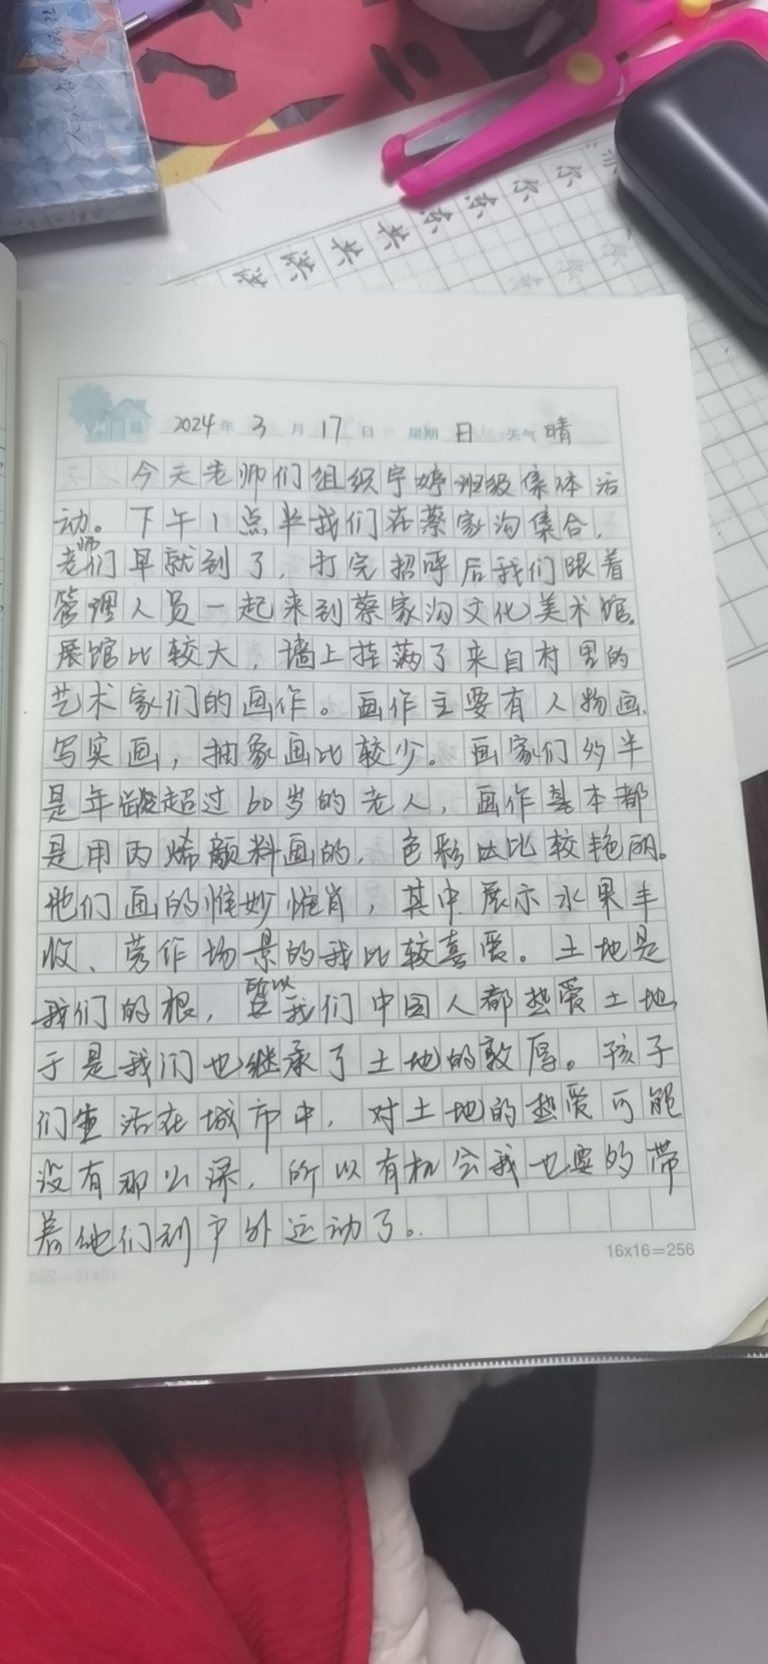 2024年 3月 17日 星期 日 天气 晴
今天老师们组织宇婷班级集体活
动。下午1点半我们在蔡家沟集合,
老师们早就到了,打完招呼后我们跟着
管理人员一起来到蔡家沟文化美术馆。
展馆比较大,墙上挂满了来自村里的
艺术家们的画作。画作主要有人物画、
写实画,抽象画比较少。画家们多半
是年龄超过60岁的老人,画作基本都
是用丙烯颜料画的,色彩比较艳丽。
他们画的惟妙惟肖,其中展示水果丰
收、劳作场景的我比较喜爱。土地是
我们的根,所以我们中国人都热爱土地
于是我们也继承了土地的敦厚。孩子
们生活在城市中,对土地的热爱可能
没有那么深,所以有机会我也要的带
着他们到户外运动了。
16x16=256